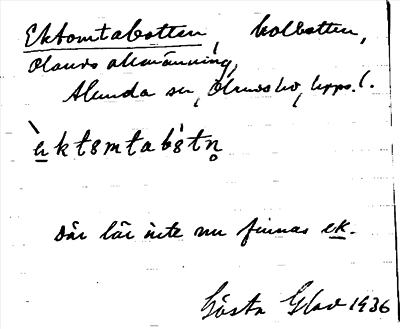 Ektomtabotten, kolbotten,
Olands allmänning,
Alunda sn, Olands hd, Upps. l.
èktomtabòtn̥
Där lär inte nu finnas ek.
Gösta Glad 1936